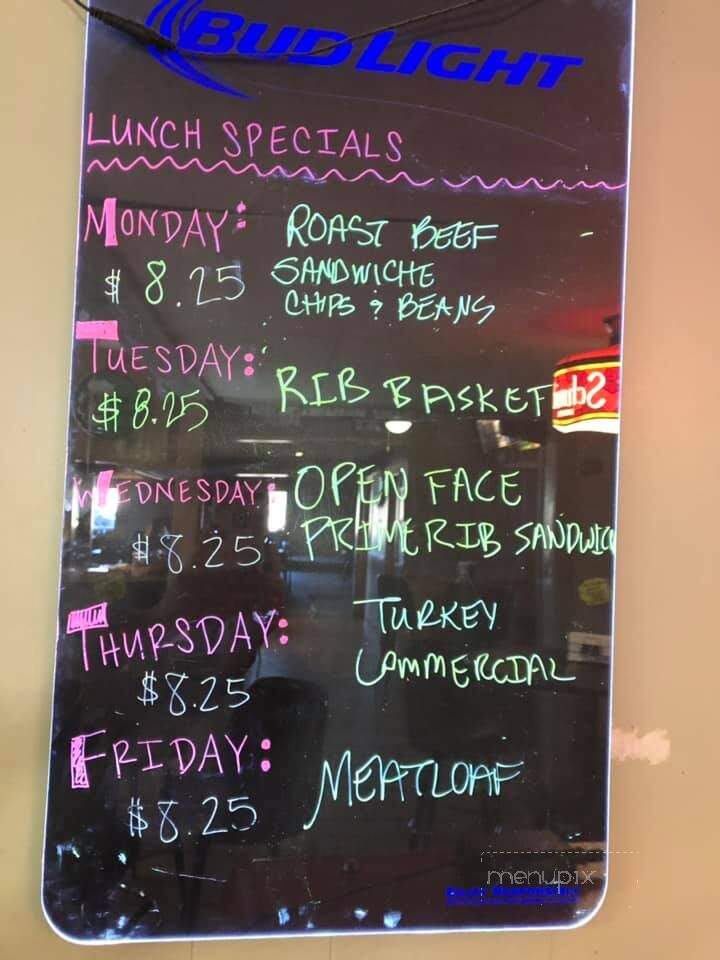 BUD LIGHT
LUNCH SPECIALS
MONDAY: ROAST BEEF
$8.25 SANDWICHE
CHIPS & BEANS
TUESDAY:
$8.25 RIB BASKET
WEDNESDAY: OPEN FACE
$8.25 PRIME RIB SANDWIC
THURSDAY: TURKEY
$8.25 COMMERCIAL
FRIDAY: MEATLOAF
$8.25
menupix